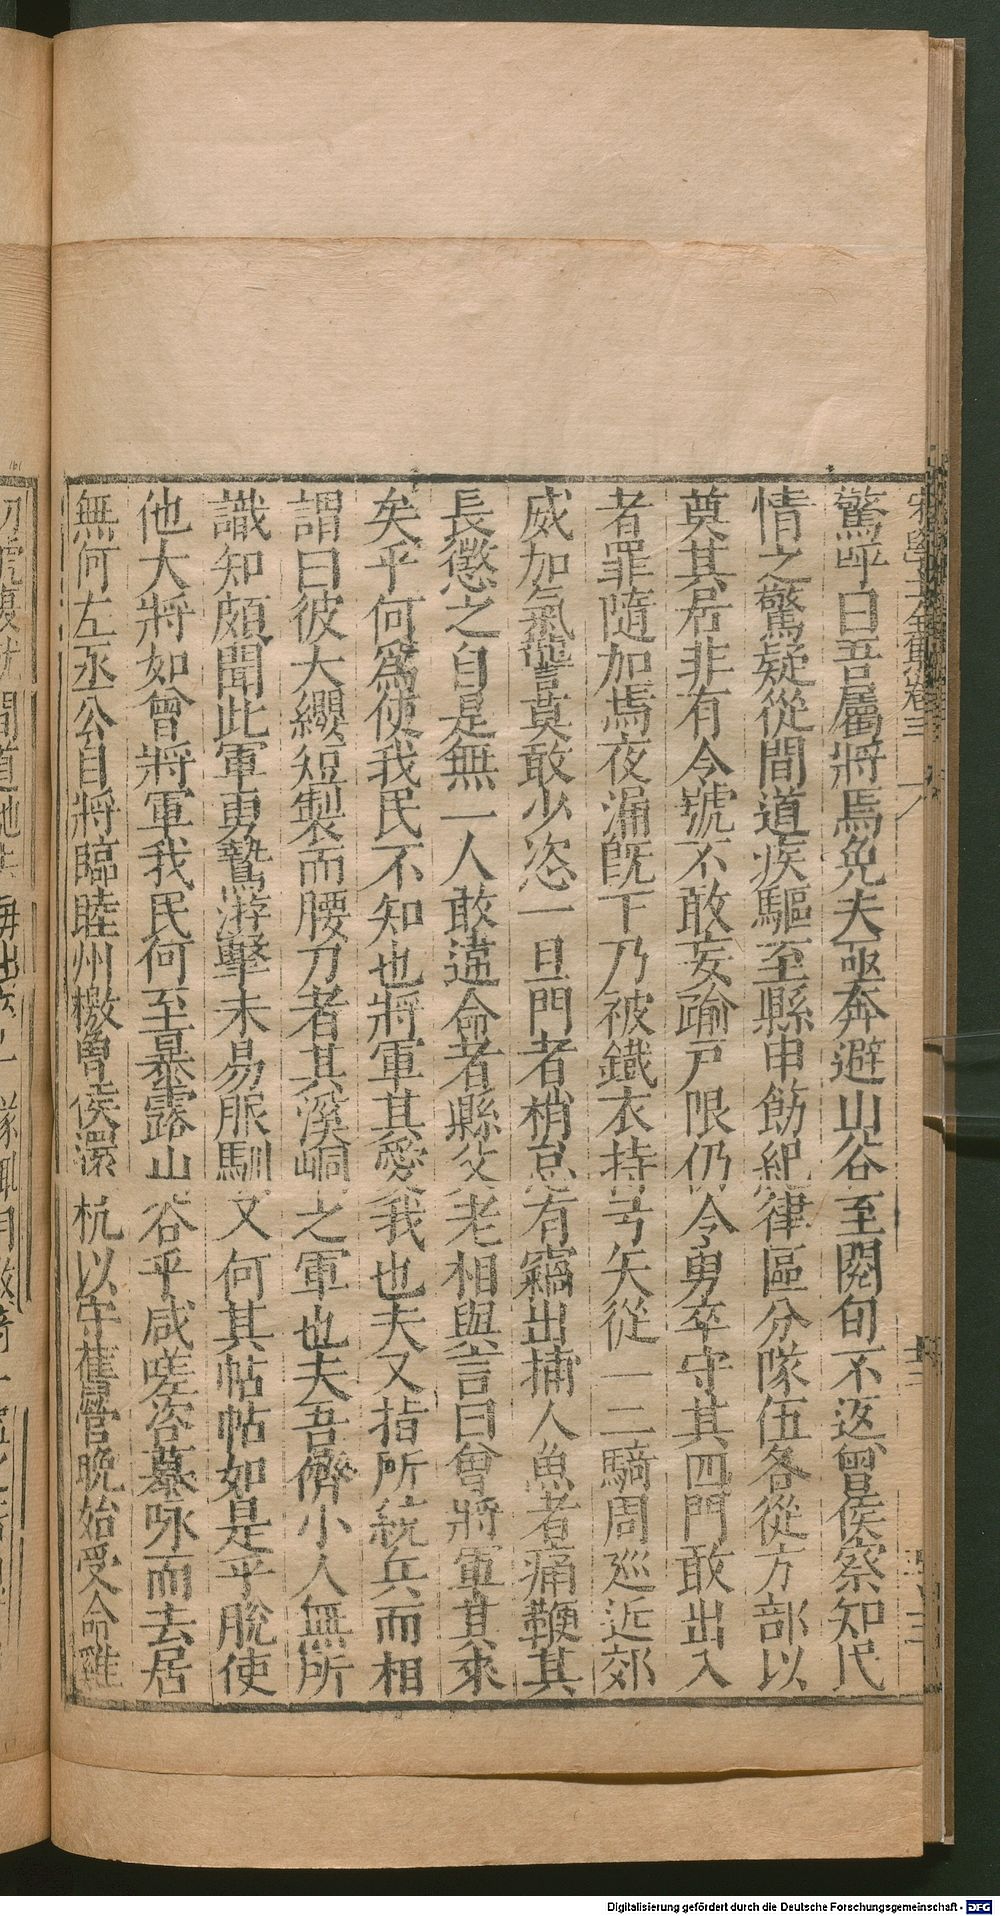 驚呼曰吾屬將焉免夫亟奔避山谷至閱旬不返曾侯察知民
情之驚疑從間道疾驅至縣申飭紀律區分隊伍各從方部以
奠其居非有令號不敢妄踰戸限仍令勇卒守其四門敢出入
者罪隨加焉夜漏旣下乃被鐵衣持弓矢從一二騎周巡近郊
威加氣讋莫敢少恣一旦門者梢怠有竊出捕人魚者痛鞭其
長懲之自是無一人敢違命者縣父老相與言曰曾將軍其來
矣乎何爲使我民不知也將軍其愛我也夫又指所統兵而相
謂曰彼大纓短製而腰刀者其溪峒之軍也夫吾儕小人無所
識知頗聞此軍勇鷙游擊未易服馴又何其帖帖如是乎脫使
他大將如曾將軍我民何至暴露山谷乎咸嗟咨慕咏而去居
無何左丞公自將臨睦州檄曾侯還杭以守舊營晚始受命雖
Digitalisierung gefördert durch die Deutsche Forschungsgemeinschaft - DFG